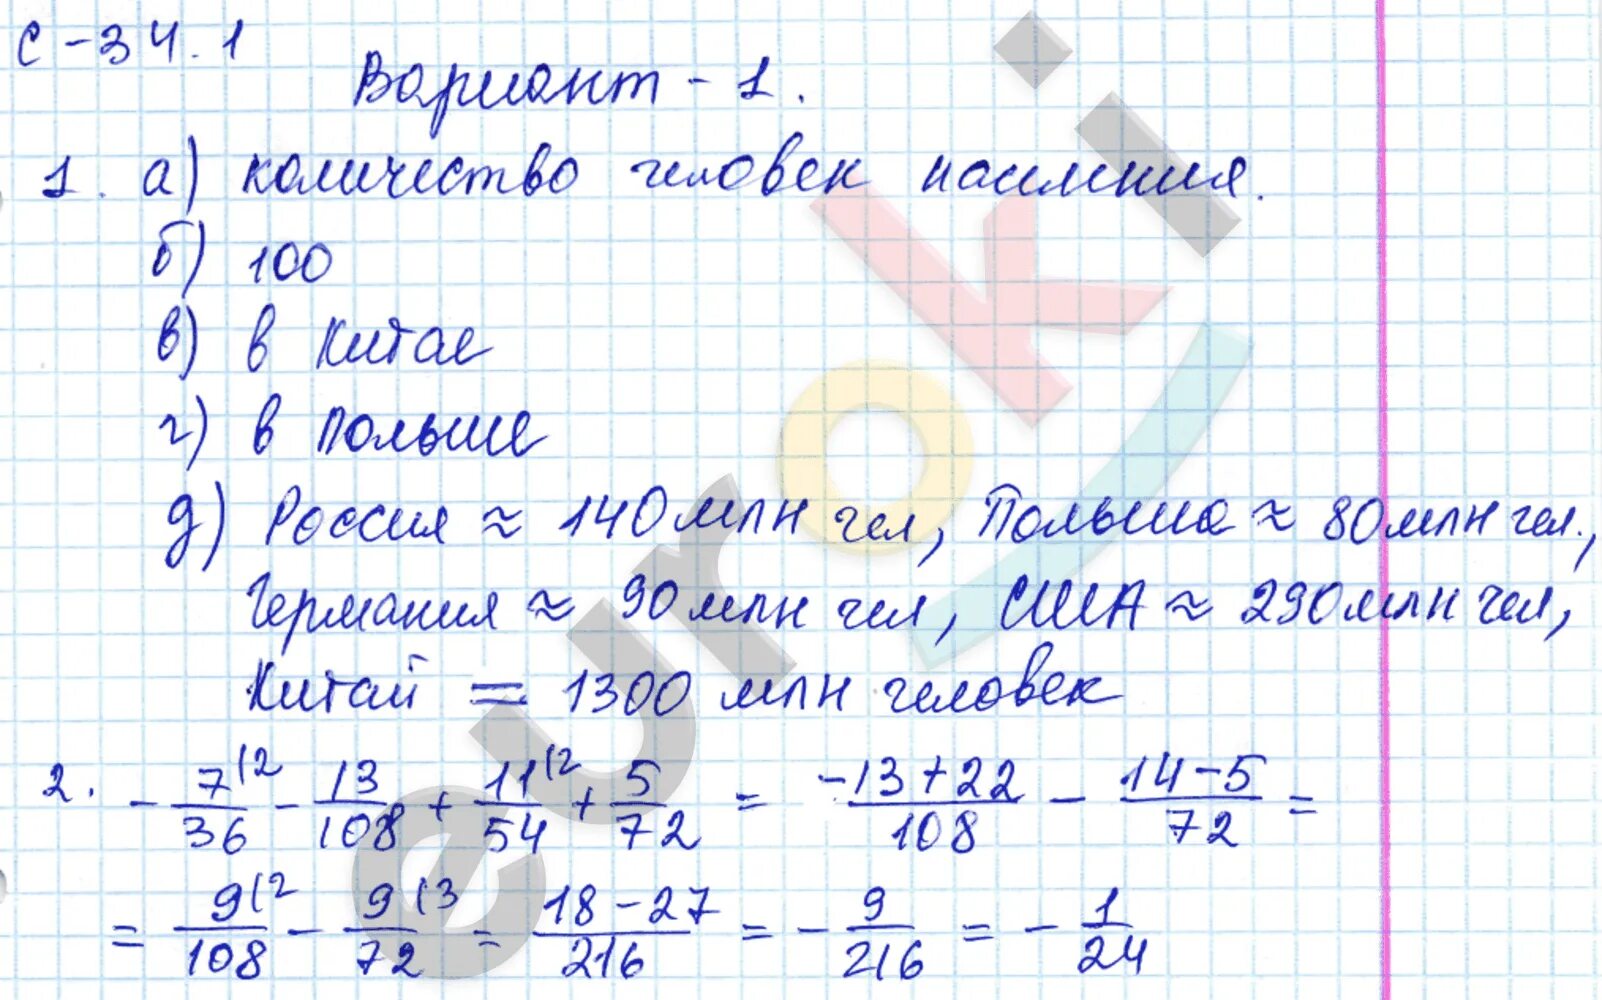 С-34.1
Вариант - 1.
1. а) количество человек населения.
б) 100
в) в Китае
г) в Польше
д) Россия ≈ 140 млн чел, Польша ≈ 80 млн чел.,
Германия ≈ 90 млн чел, США ≈ 290 млн чел,
Китай = 1300 млн человек
2. - 7(2/36 - 13/108 + 11(2/54 + 5/72 = -13+22/108 - 14-5/72 =
= 9(2/108 - 9(3/72 = 18-27/216 = - 9/216 = - 1/24
euroki